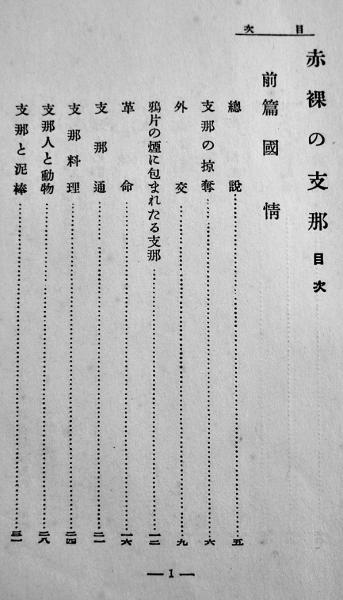 目次
赤裸の支那 目次
前篇 國情
總説……五
支那の掠奪……六
外交……九
鴉片の煙に包まれたる支那……一二
革命……一六
支那通……二一
支那料理……二四
支那人と動物……二八
支那と泥棒……三一
— 1 —